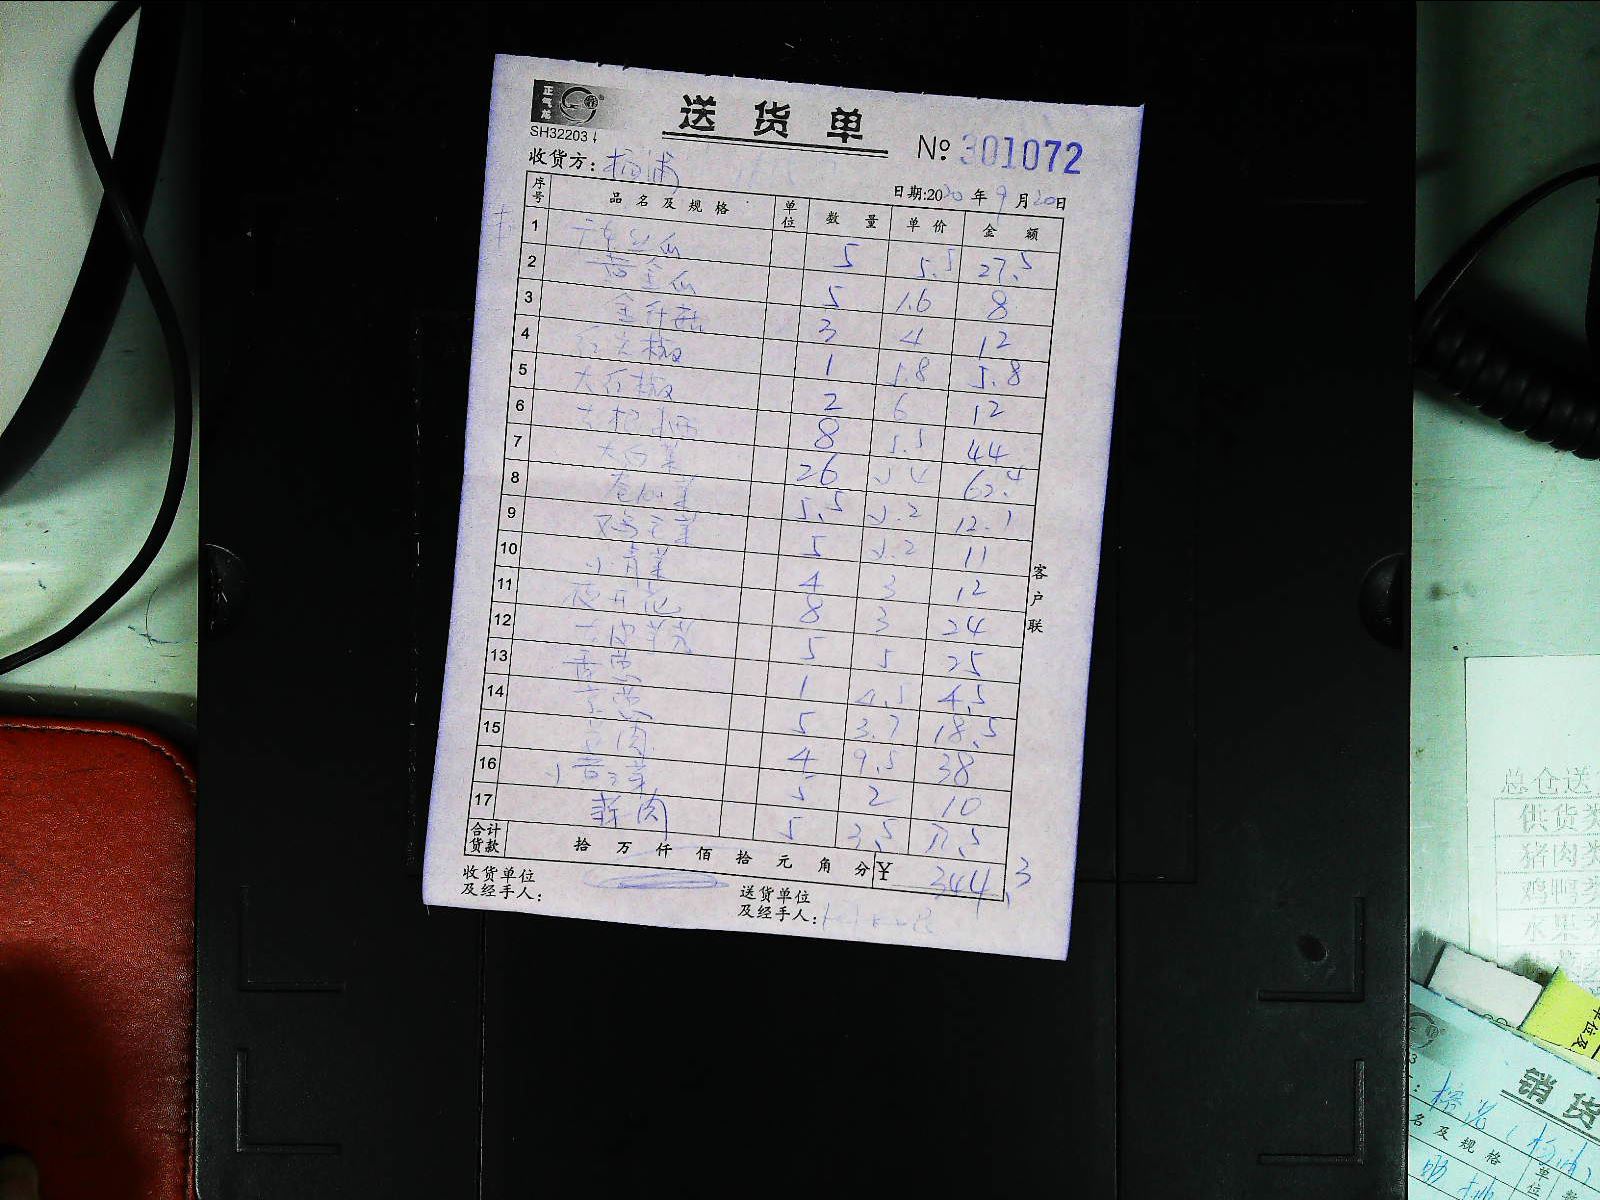 正气龙
SH32203
送货单
№ 301072
收货方: 杨浦
日期:2020年9月20日
序号 品名及规格 单位 数量 单价 金额
1 5 5.5 27.5
2 黄金瓜 5 1.6 8
3 金针菇 3 4 12
4 红尖椒 1 5.8 5.8
5 大红椒 2 6 12
6 8 5.5 44
7 大白菜 26 2.4 62.4
8 卷心菜 5.5 2.2 12.1
9 鸡毛菜 5 2.2 11
10 小青菜 4 3 12
11 8 3 24
12 5 5 25
13 香葱 1 4.5 4.5
14 京葱 5 3.7 18.5
15 4 9.5 38
16 5 2 10
17 5 3.5 17.5
合计货款 拾 万 仟 佰 拾 元 角 分 ¥ 344.3
收货单位及经手人:
送货单位及经手人:
客户联
总仓送
供货类
猪肉类
鸡鸭类
水果类
单位及
销货
名及规格 单位